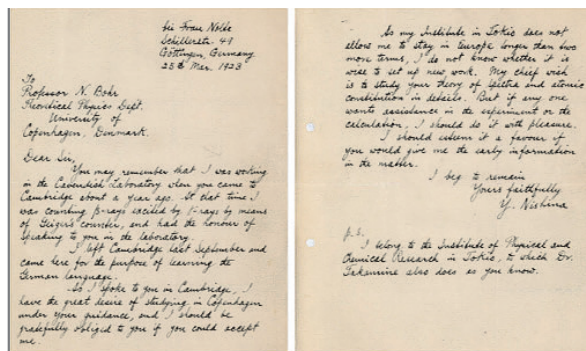 bei Frau Nolte
Schillerstr. 49
Göttingen, Germany
25th Mar. 1923
To
Professor N. Bohr
Theoretical Physics Dept.
University of
Copenhagen, Denmark.
Dear Sir,
You may remember that I was working
in the Cavendish Laboratory when you came to
Cambridge about a year ago. At that time I
was counting β-rays excited by γ-rays by means
of Geiger's counter, and had the honour of
speaking to you in the laboratory.
I left Cambridge last September and
came here for the purpose of learning the
German language.
As I spoke to you in Cambridge, I
have the great desire of studying in Copenhagen
under your guidance, and I should be
gratefully obliged to you if you could accept
me.
As my Institute in Tokio does not
allow me to stay in Europe longer than two
more terms, I do not know whether it is
wise to set up new work. My chief wish
is to study your theory of spectra and atomic
constitution in details. But if any one
wants assistance in the experiment or the
calculation, I should do it with pleasure.
I should esteem it a favour if
you would give me the early information
in the matter.
I beg to remain
Yours faithfully
Y. Nishina
P.S.
I belong to the Institute of Physical and
Chemical Research in Tokio, to which Dr.
Takamine also does as you know.